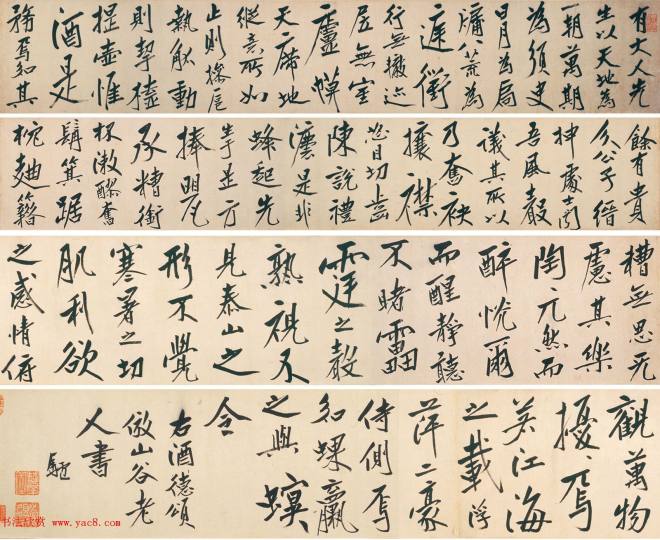 有大人先
生以天地為
一朝萬期
為須臾
日月為扃
牖八荒為
庭衢
行無轍迹
居無室
廬幙
天席地
縱意所如
止則操卮
執觚動
則挈榼
提壺惟
酒是
務焉知其
餘有貴
介公子縉
紳處士聞
吾風聲
議其所以
乃奮袂
攘襟
怒目切齒
陳說禮
灋是非
蜂起先
生于是方
捧罌
承糟銜
杯漱醪奮
髯箕踞
枕麴籍
糟無思無
慮其樂
陶〻兀然而
醉怳爾
而醒靜聽
不睹靁
霆之聲
熟視不
見泰山之
形不覺
寒暑之切
肌利欲
之感情俯
觀萬物
擾〻焉
若江海
之載浮
萍二豪
侍側焉
如蜾蠃
之與螟
令
右酒德頌
倣山谷老
人書
书法欣赏 www.yac8.com